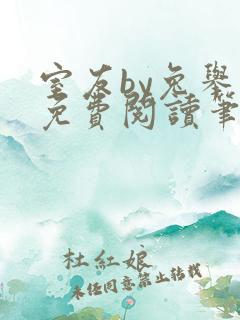 室友by兔舉
免費閱讀筆
杜紅娘
未經同意禁止轉載